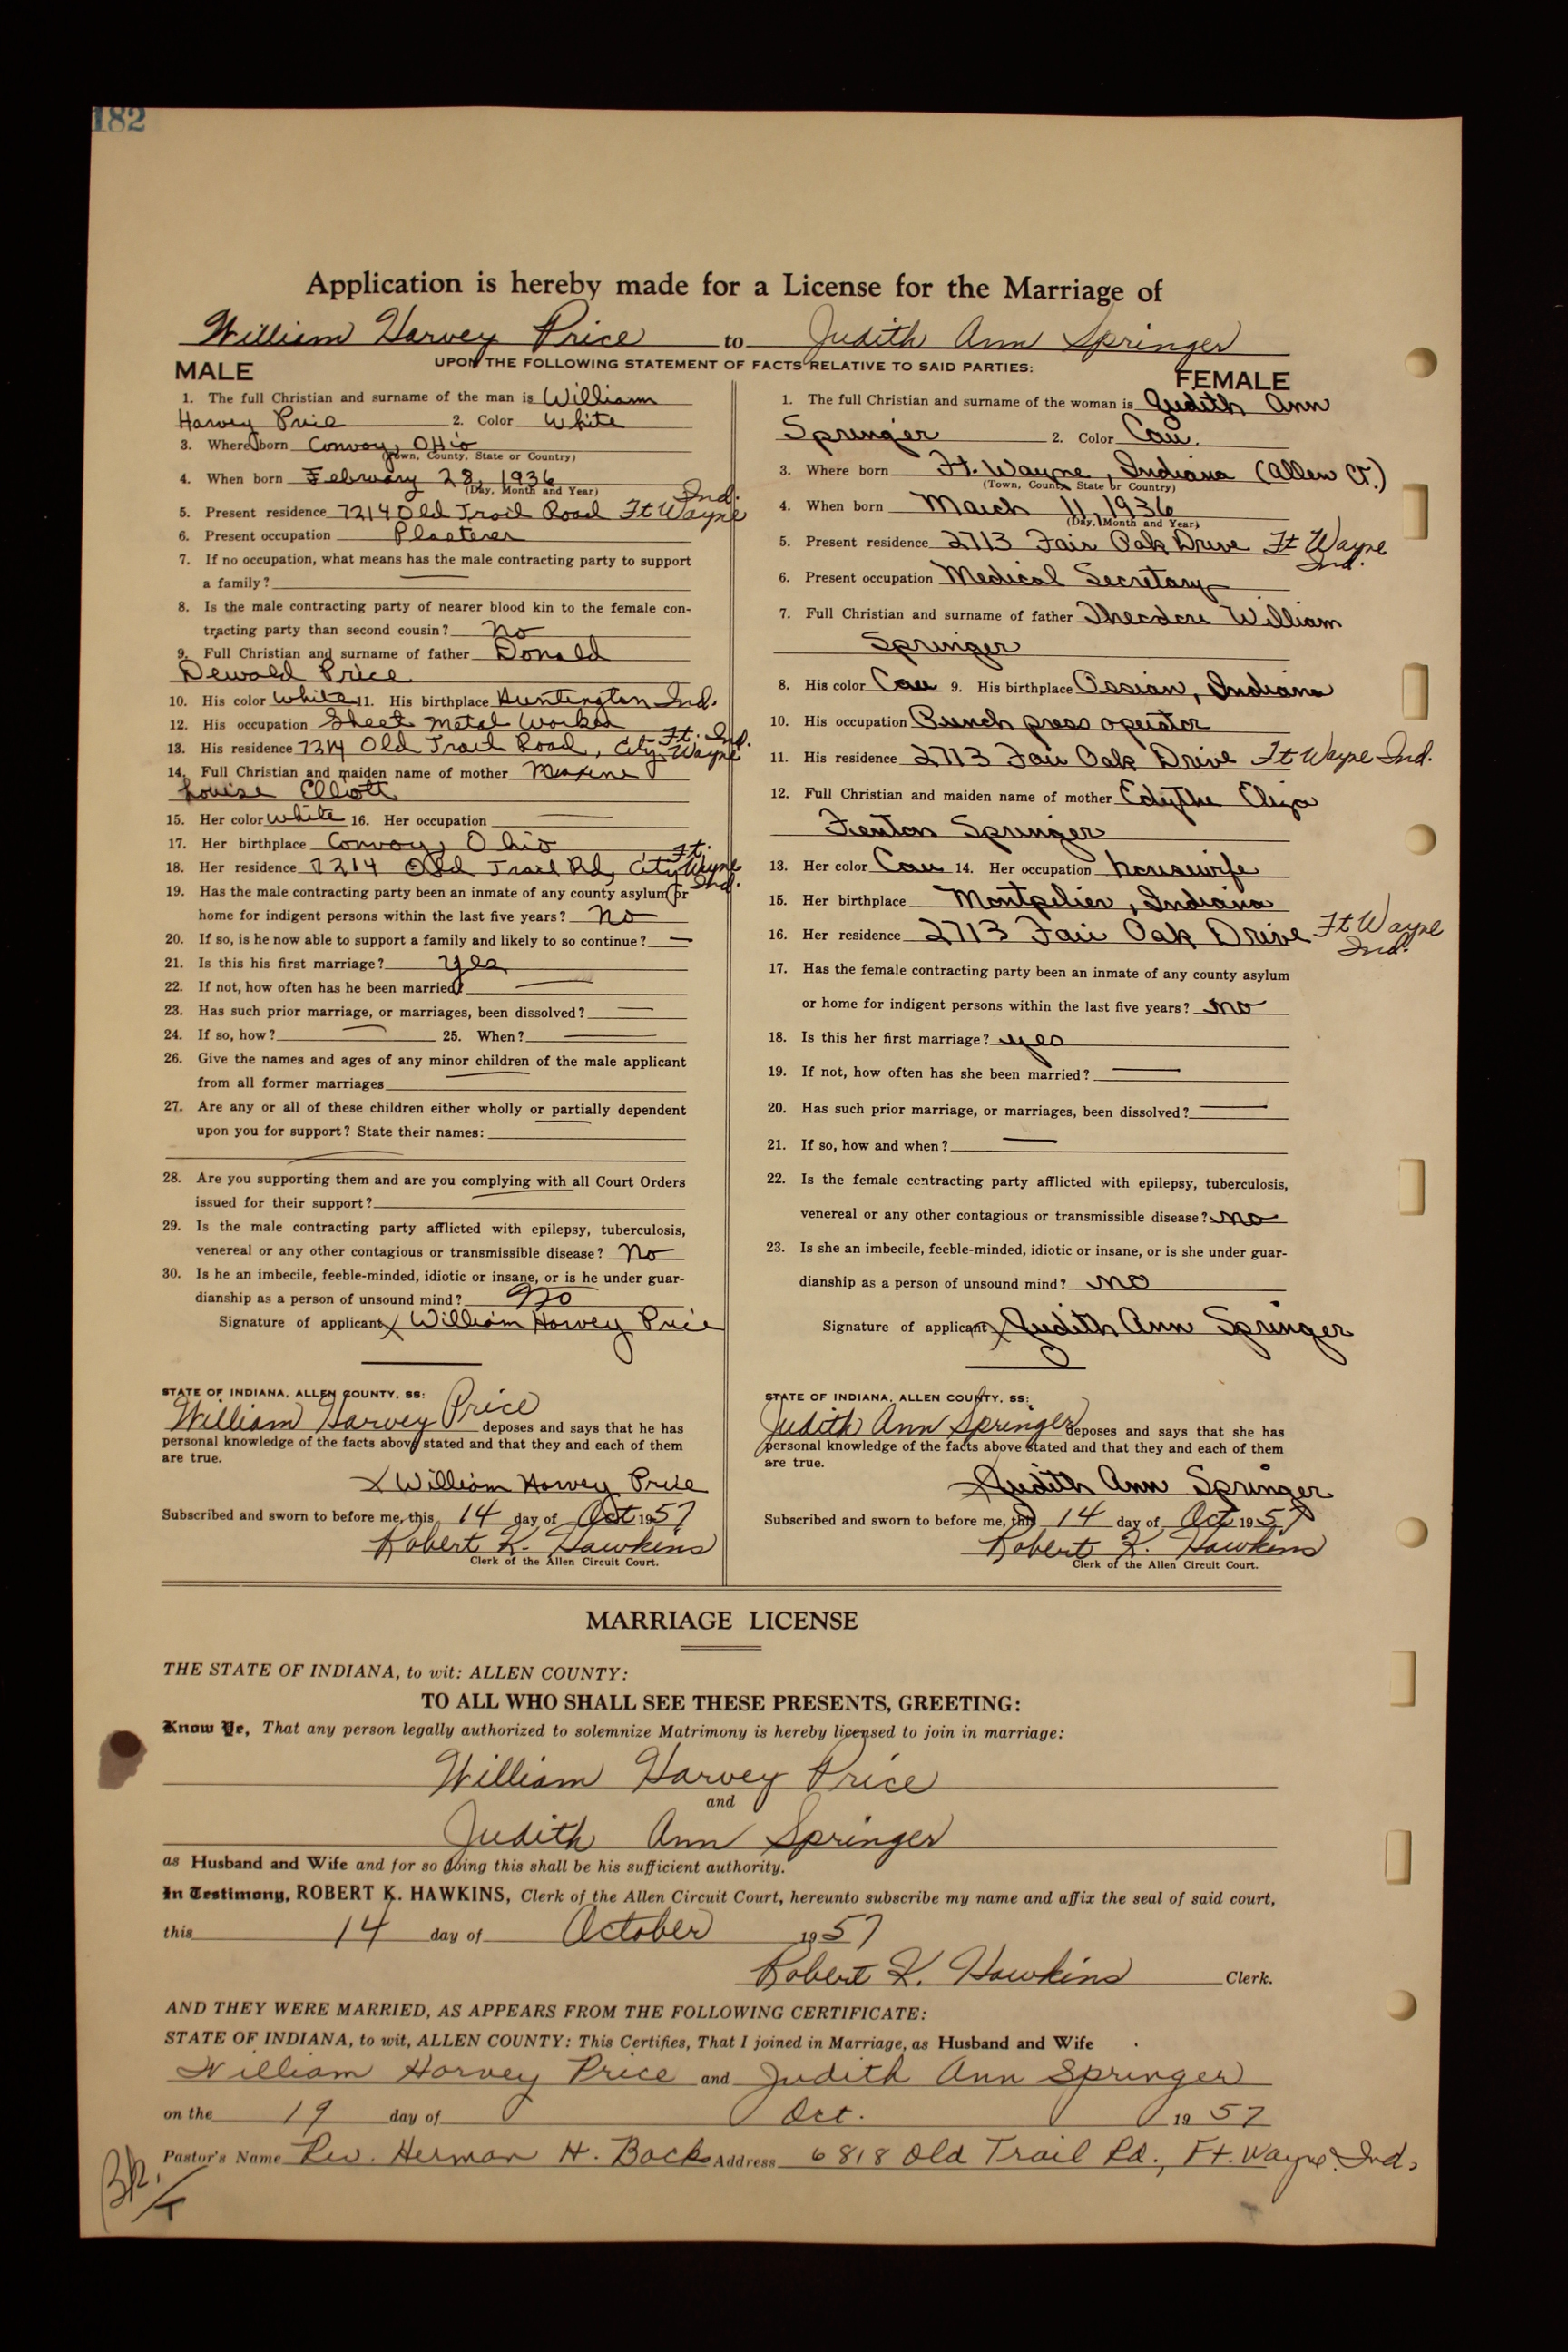 182
Application is hereby made for a License for the Marriage of
William Harvey Price to Judith Ann Springer
UPON THE FOLLOWING STATEMENT OF FACTS RELATIVE TO SAID PARTIES:
MALE
1. The full Christian and surname of the man is William
Harvey Price 2. Color White
3. Where born Convoy, Ohio
(Town, County, State or Country)
4. When born February 28, 1936
(Day, Month and Year)
5. Present residence 7214 Old Trail Road Ft Wayne Ind.
6. Present occupation Plasterer
7. If no occupation, what means has the male contracting party to support
a family?
8. Is the male contracting party of nearer blood kin to the female con-
tracting party than second cousin? no
9. Full Christian and surname of father Donald
Dewald Price
10. His color white 11. His birthplace Huntington Ind.
12. His occupation Sheet Metal Worker
13. His residence 7214 Old Trail Road, City Ft. Wayne Ind.
14. Full Christian and maiden name of mother Maxine
Louise Elliott
15. Her color white 16. Her occupation
17. Her birthplace Convoy, Ohio
18. Her residence 7214 Old Trail Rd, City Ft. Wayne Ind.
19. Has the male contracting party been an inmate of any county asylum or
home for indigent persons within the last five years? no
20. If so, is he now able to support a family and likely to so continue? —
21. Is this his first marriage? yes
22. If not, how often has he been married?
23. Has such prior marriage, or marriages, been dissolved?
24. If so, how? 25. When?
26. Give the names and ages of any minor children of the male applicant
from all former marriages
27. Are any or all of these children either wholly or partially dependent
upon you for support? State their names:
28. Are you supporting them and are you complying with all Court Orders
issued for their support?
29. Is the male contracting party afflicted with epilepsy, tuberculosis,
venereal or any other contagious or transmissible disease? No
30. Is he an imbecile, feeble-minded, idiotic or insane, or is he under guar-
dianship as a person of unsound mind? No
Signature of applicant x William Harvey Price
STATE OF INDIANA, ALLEN COUNTY, SS:
William Harvey Price deposes and says that he has
personal knowledge of the facts above stated and that they and each of them
are true.
x William Harvey Price
Subscribed and sworn to before me, this 14 day of Oct 1957
Robert K. Hawkins
Clerk of the Allen Circuit Court.
FEMALE
1. The full Christian and surname of the woman is Judith Ann
Springer 2. Color Cau.
3. Where born Ft. Wayne, Indiana (Allen Ct.)
(Town, County, State or Country)
4. When born March 11, 1936
(Day, Month and Year)
5. Present residence 2713 Fair Oak Drive Ft Wayne Ind.
6. Present occupation Medical Secretary
7. Full Christian and surname of father Theodore William
Springer
8. His color Cau 9. His birthplace Ossian, Indiana
10. His occupation Punch press operator
11. His residence 2713 Fair Oak Drive Ft Wayne Ind.
12. Full Christian and maiden name of mother Edythe Eliza
Fenton Springer
13. Her color Cau 14. Her occupation housewife
15. Her birthplace Montpelier, Indiana
16. Her residence 2713 Fair Oak Drive Ft Wayne Ind.
17. Has the female contracting party been an inmate of any county asylum
or home for indigent persons within the last five years? no
18. Is this her first marriage? yes
19. If not, how often has she been married?
20. Has such prior marriage, or marriages, been dissolved?
21. If so, how and when?
22. Is the female contracting party afflicted with epilepsy, tuberculosis,
venereal or any other contagious or transmissible disease? no
23. Is she an imbecile, feeble-minded, idiotic or insane, or is she under guar-
dianship as a person of unsound mind? no
Signature of applicant x Judith Ann Springer
STATE OF INDIANA, ALLEN COUNTY, SS:
Judith Ann Springer deposes and says that she has
personal knowledge of the facts above stated and that they and each of them
are true.
x Judith Ann Springer
Subscribed and sworn to before me, this 14 day of Oct 1957
Robert K. Hawkins
Clerk of the Allen Circuit Court.
MARRIAGE LICENSE
THE STATE OF INDIANA, to wit: ALLEN COUNTY:
TO ALL WHO SHALL SEE THESE PRESENTS, GREETING:
Know Ye, That any person legally authorized to solemnize Matrimony is hereby licensed to join in marriage:
William Harvey Price
and
Judith Ann Springer
as Husband and Wife and for so doing this shall be his sufficient authority.
In Testimony, ROBERT K. HAWKINS, Clerk of the Allen Circuit Court, hereunto subscribe my name and affix the seal of said court,
this 14 day of October 1957
Robert K. Hawkins Clerk.
AND THEY WERE MARRIED, AS APPEARS FROM THE FOLLOWING CERTIFICATE:
STATE OF INDIANA, to wit, ALLEN COUNTY: This Certifies, That I joined in Marriage, as Husband and Wife
William Harvey Price and Judith Ann Springer
on the 19 day of Oct. 1957
Pastor's Name Rev. Herman H. Back Address 6818 Old Trail Rd., Ft. Wayne Ind.